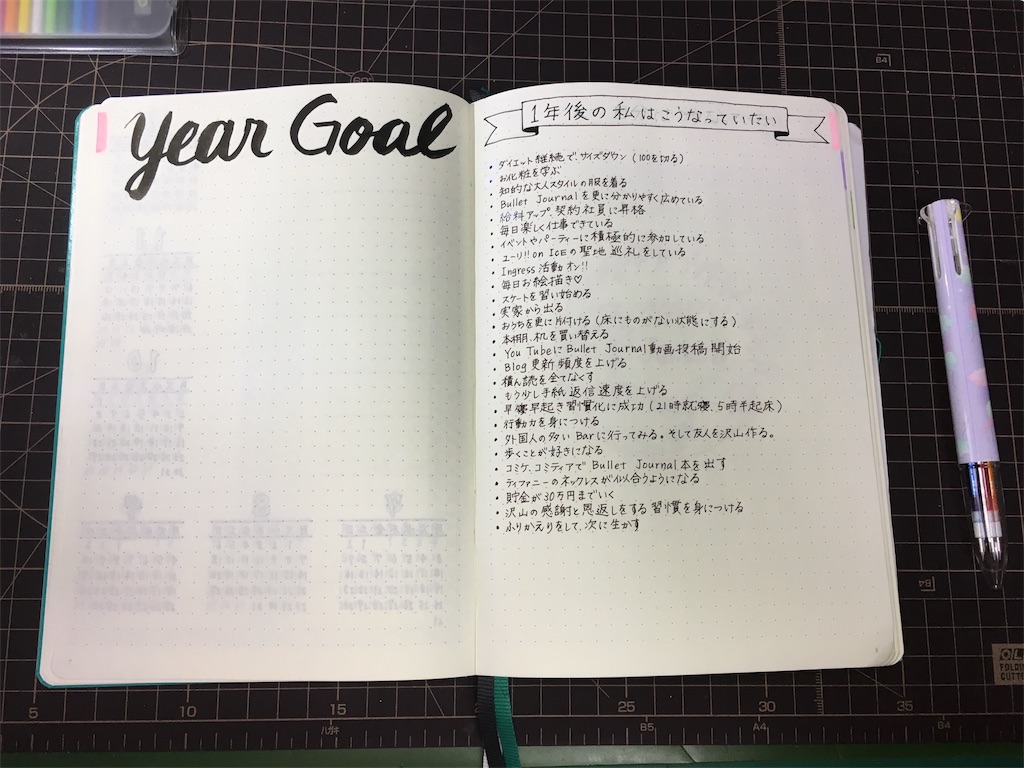 Year Goal
1年後の私はこうなっていたい
・ダイエット継続で、サイズダウン (100を切る)
・お化粧を学ぶ
・知的な大人スタイルの服を着る
・Bullet Journalを更に分かりやすく広めている
・給料アップ、契約社員に昇格
・毎日楽しく仕事できている
・イベントやパーティーに積極的に参加している
・ユーリ!! on ICEの聖地巡礼をしている
・Ingress活動オン!!
・毎日お絵描き♡
・スケートを習い始める
・実家から出る
・おうちを更に片付ける (床にものがない状態にする)
・本棚、机を買い替える
・YouTubeにBullet Journal動画投稿開始
・Blog更新頻度を上げる
・積ん読を全てなくす
・もう少し手紙返信速度を上げる
・早寝早起き習慣化に成功 (21時就寝、5時半起床)
・行動力を身につける
・外国人の多いBarに行ってみる。そして友人を沢山作る。
・歩くことが好きになる
・コミケ、コミティアでBullet Journal本を出す
・ティファニーのネックレスが似合うようになる
・貯金が30万円までいく
・沢山の感謝と恩返しをする習慣を身につける
・ふりかえりをして、次に生かす
60°
B4
B4
OL
FOLDIN
CUTTE
5 10 15 25 30 35
ハガキ B5 A4